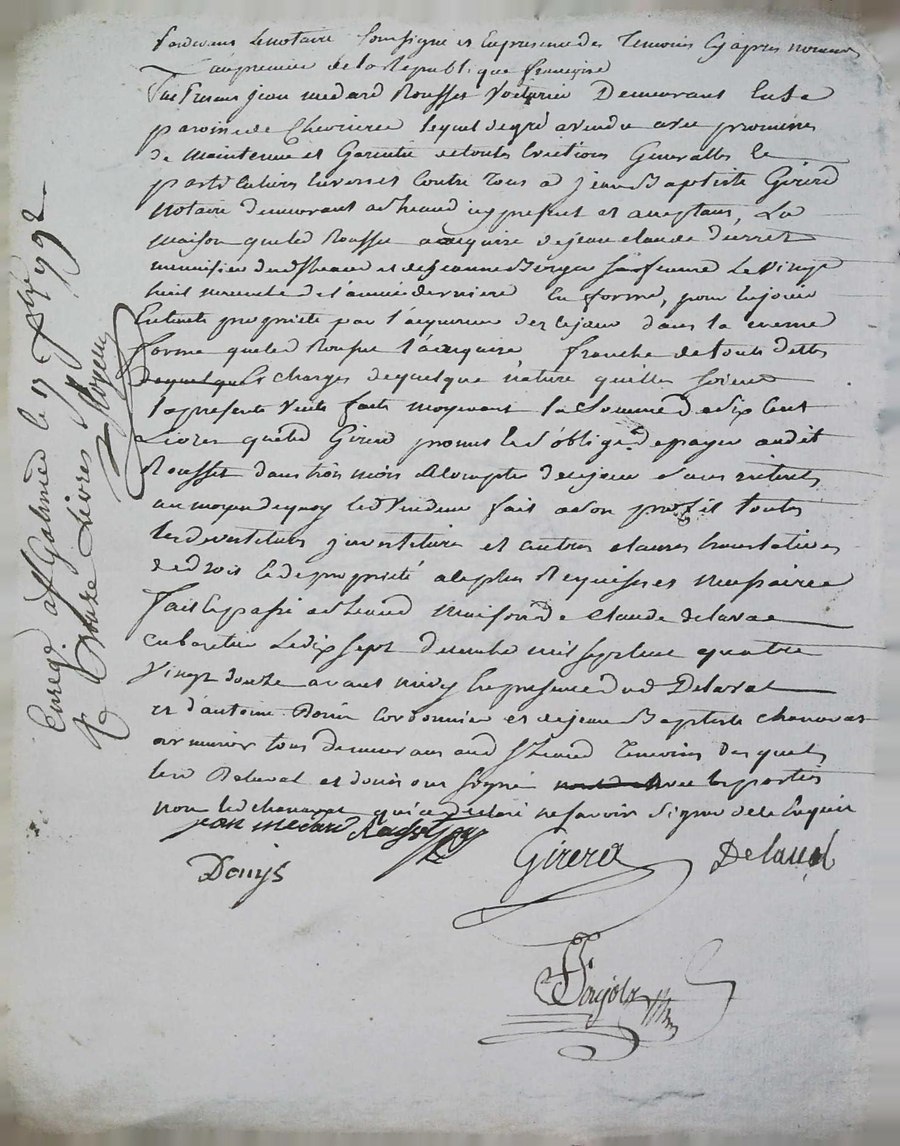 Pardevant Le notaire soussigné et En presence des Temoins Cy apres nommés
L'an premier de la Republique françoise
fut Present jean medard Rousset Voiturier Demeurant En la
paroisse de Chevrieres lequel de gré a vendu avec promesse
de maintenue et Garentie de toutes Evictions Generalles et
particulieres Envers et Contre Tous a jean Baptiste Girerd
notaire demeurant a icy present et acceptant, La
maison que led Rousset a acquise de jean claude
menuisier dud et de jeanne Berger sa femme Le Vingt
huit de l'année derniere En forme, pour En jouir
En toute propriété par l'acquereur des ce jour dans la meme
forme que led Rousset l'a acquise, franche de toute dette
de quelques charges de quelque nature quelles soient
la presente Vente faite moyenant la Somme de Six Cent
Livres que led Girerd promet Et s'oblige de payer audit
Rousset dans trois mois a compter de ce jour sans interets
au moyen de quoy led Vendeur fait a son profit toutes
les devestiture investiture et autres clauses translatives
de droit et de propriété les plus Requises et necessaires
fait Et passé a maison de Claude Delaval
cabaretier Le dix sept decembre mil sept cent quatre
Vingt douze avant midy En presence dud Delaval
et d'antoine cordonnier et de jean Baptiste
armurier tous demeurans aud Temoins desquels
led Delaval et ont signé avec les parties
non led qui a declaré ne savoir Signer de ce Enquis
jean medard Rousset
Girerd
Delaval
Donys
Enregé. a St Galmier le 17 Xbre 1792
R douze Livres